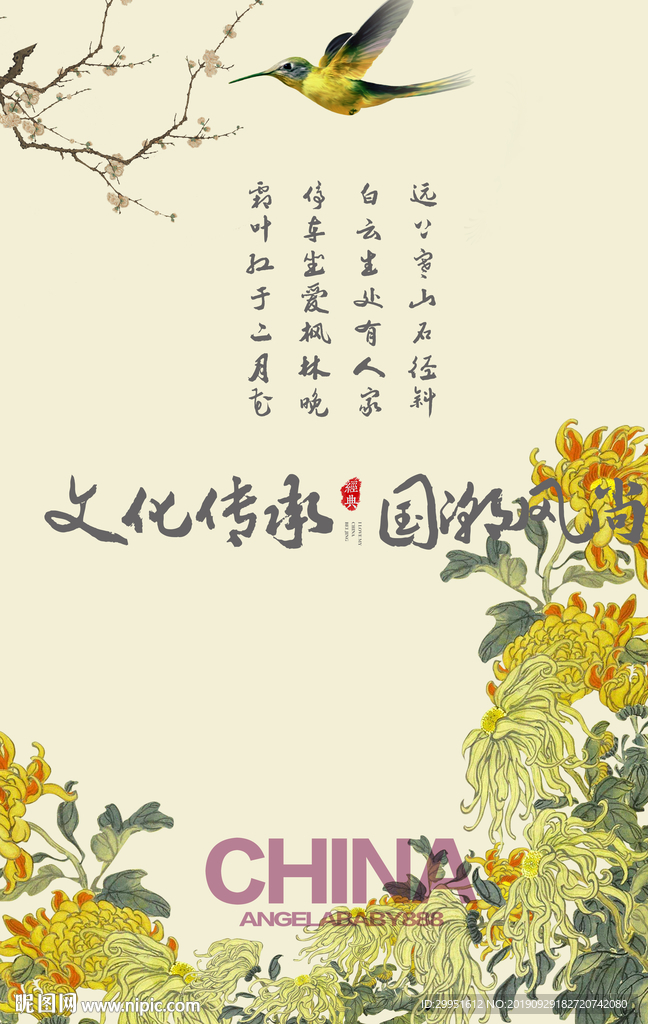 远公寒山石径斜
白云生处有人家
停车坐爱枫林晚
霜叶红于二月花
文化传承 經典 国潮风尚
I LOVE MY
CHINA
BEIJING
CHINA
ANGELABABY888
昵图网 www.nipic.com
ID:29951612 NO:20190929182720742080